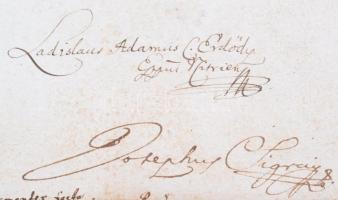 Ladislaus Adamus C. Erdödy
Eppus Nitrien
Josephus C. Sigray